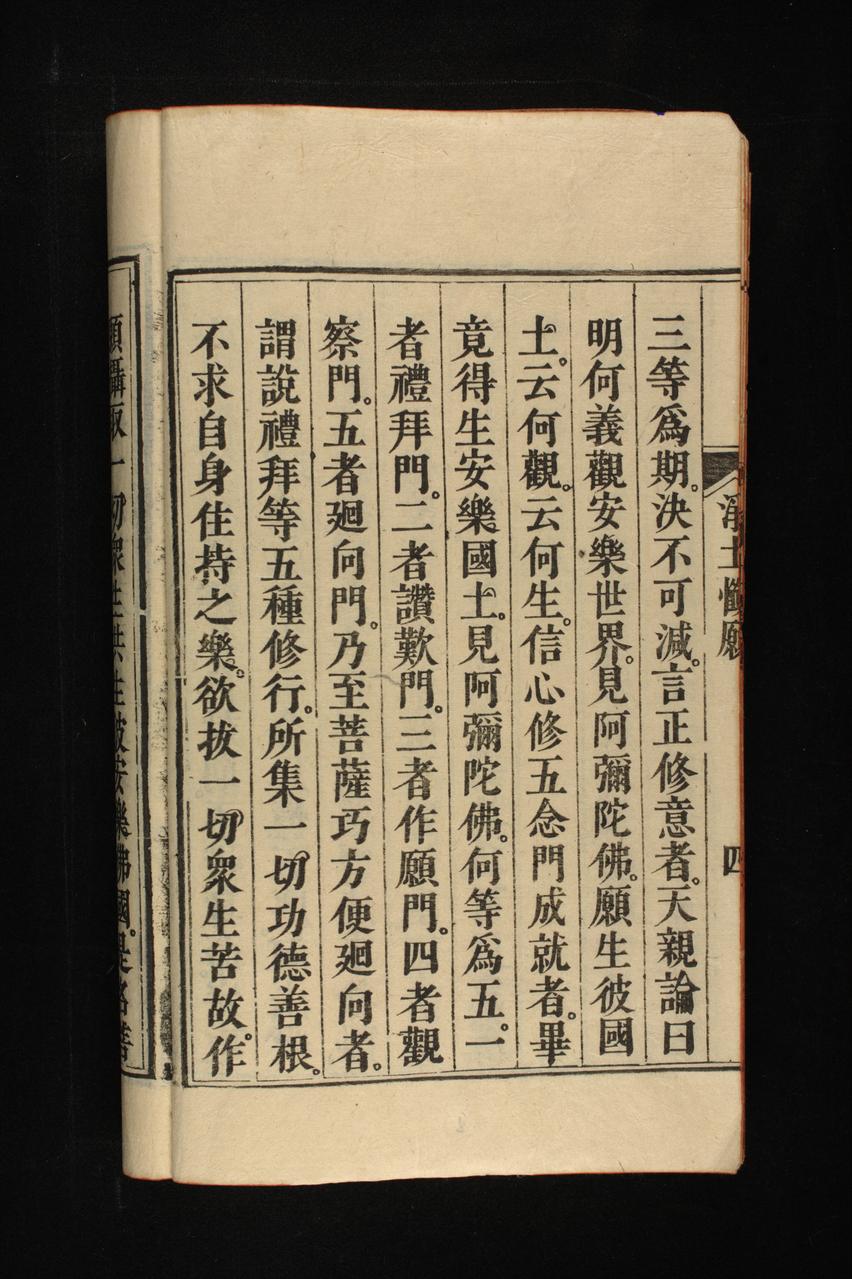 淨土懺願 四
三等爲期。決不可減。言正修意者。天親論曰
明何義觀安樂世界。見阿彌陀佛。願生彼國
土。云何觀。云何生。信心修五念門成就者。畢
竟得生安樂國土。見阿彌陀佛。何等爲五。一
者禮拜門。二者讚歎門。三者作願門。四者觀
察門。五者廻向門。乃至菩薩巧方便廻向者。
謂說禮拜等五種修行。所集一切功德善根。
不求自身住持之樂。欲拔一切衆生苦故。作
願攝取一切衆生共生彼安樂佛國。是名菩